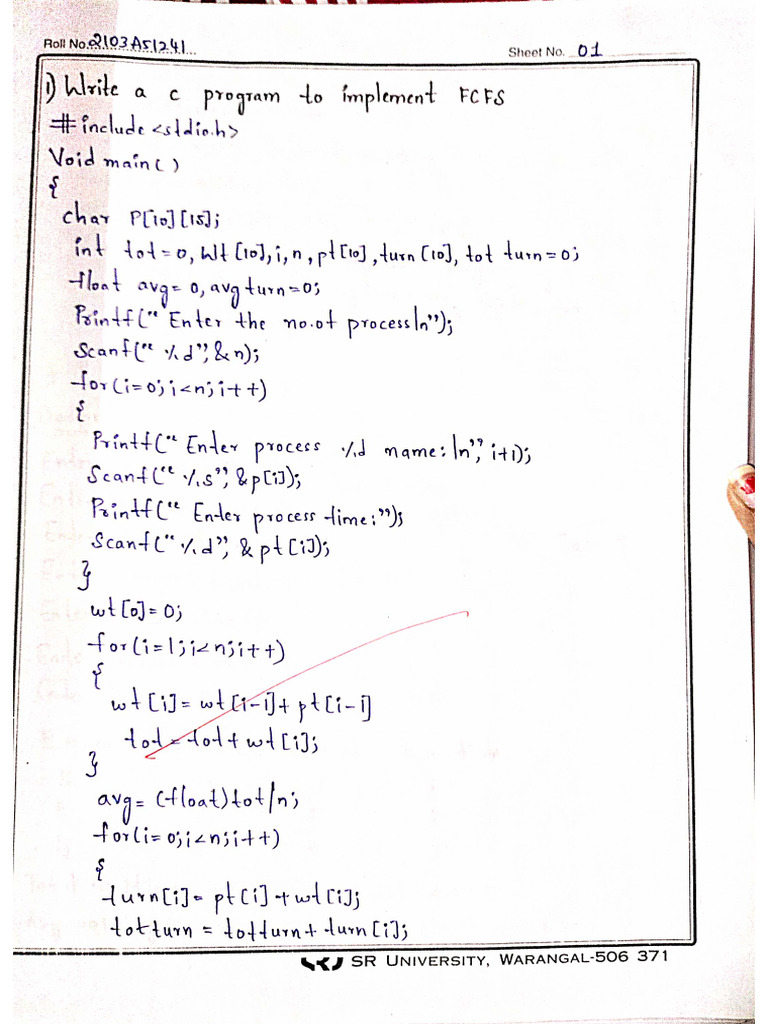 Roll No. 2103A51241
Sheet No. 01
1) Write a c program to implement FCFS
#include <stdio.h>
Void main()
{
char P[10][15];
int tot=0, Wt[10],i,n,pt[10],turn[10], tot turn=0;
float avg=0, avg turn=0;
Printf("Enter the no.of process\n");
Scanf("%d",&n);
for(i=0;i<n;i++)
{
Printf("Enter process %d name:\n",i+1);
Scanf("%s",&p[i]);
Printf("Enter process time:");
Scanf("%d",&pt[i]);
}
wt[0]=0;
for(i=1;i<n;i++)
{
wt[i]=wt[i-1]+pt[i-1]
tot=tot+wt[i];
}
avg=(float)tot/n;
for(i=0;i<n;i++)
{
turn[i]=pt[i]+wt[i];
totturn=totturn+turn[i];
SR UNIVERSITY, WARANGAL-506 371